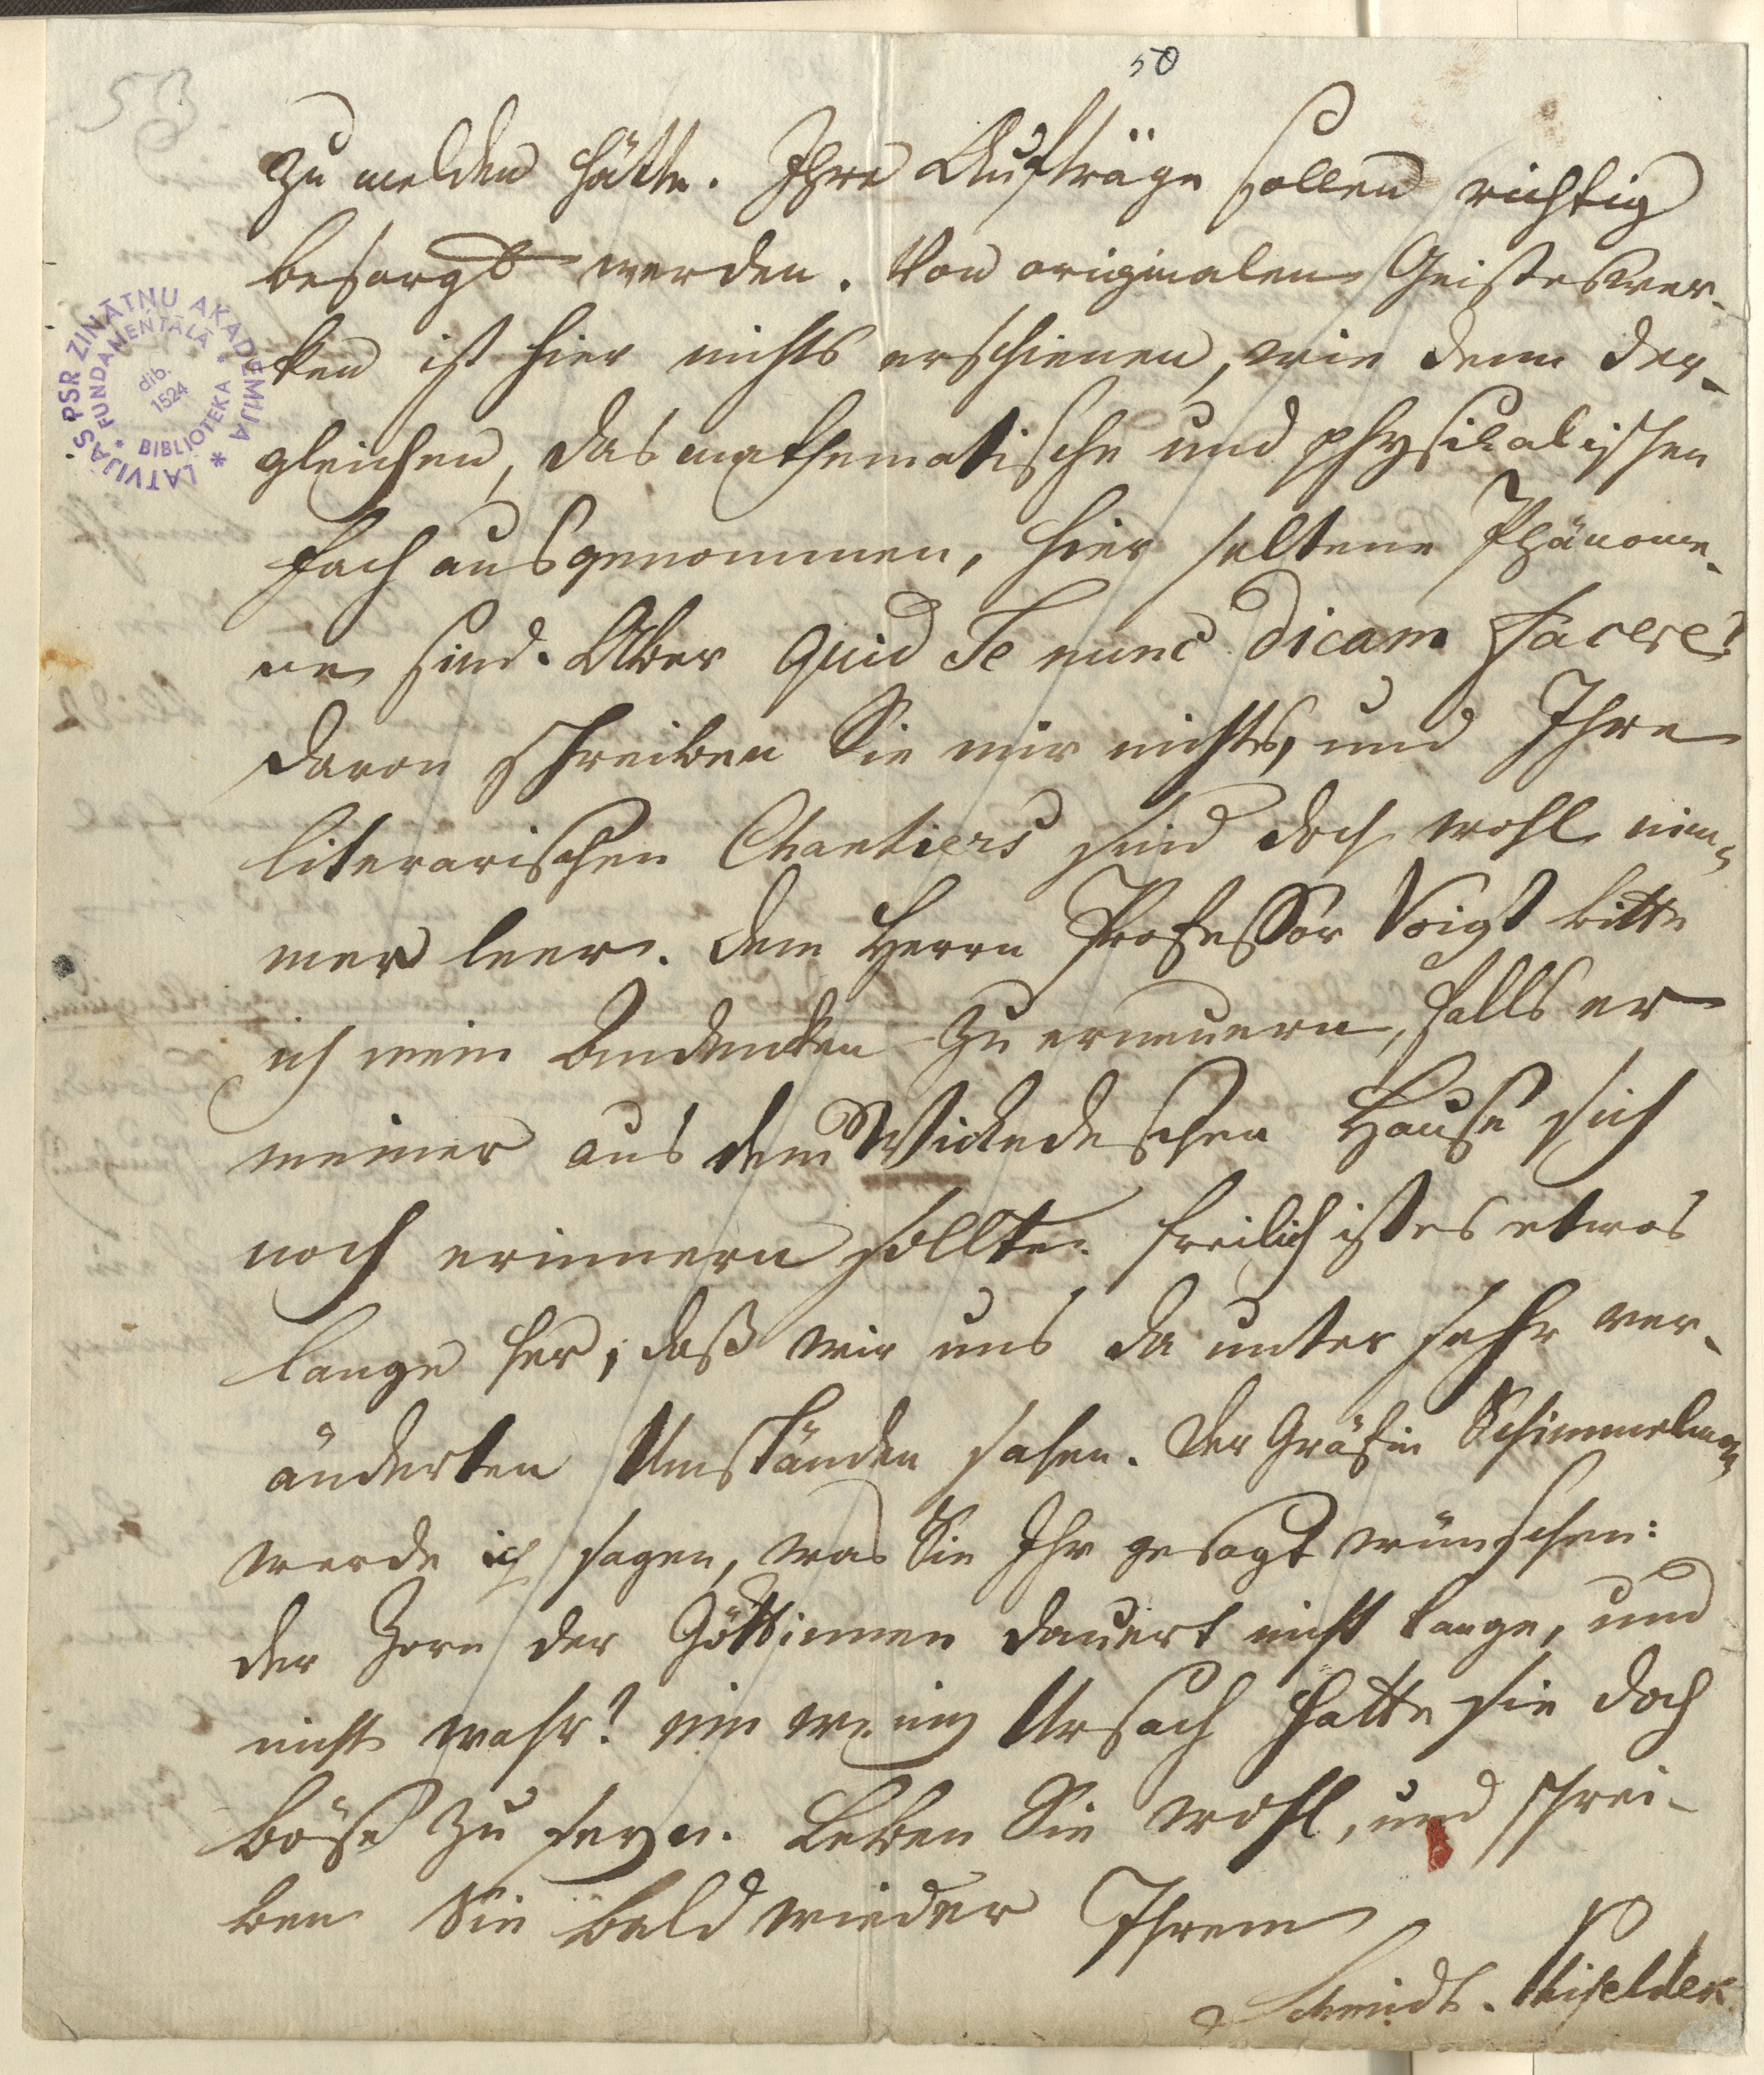 53.
50
zu melden hätte. Ihre Aufträge sollen richtig
besorgt werden. Von originalen Geisteswer-
ken ist hier nichts erschienen, wie denn der-
gleichen, das mathematische und physikalischen
Fach ausgenommen, hier seltene Phänome-
ne sind. Aber quid Te nunc dicam facere?
davon schreiben Sie mir nichts, und Ihre
literarischen Chantiers sind doch wohl nim-
mer leer. Dem Herrn Professor Voigt bitte
ich mein Andenken zu erneuern, falls er
meiner aus dem Wickedeschen Hause sich
noch erinnern sollte. Freilich ist es etwas
lange her, daß wir uns da unter sehr ver-
änderten Umständen sahen. Der Gräfin Schimmelman
werde ich sagen, was Sie Ihr gesagt wünschen:
der Zorn der Göttinnen dauert nicht lange, und
nicht wahr? ein wenig Ursach hatte sie doch
böse zu seyn. Leben Sie wohl, und schrei-
ben Sie bald wieder Ihrem
Schmidt. Phiseldek
LATVIJAS PSR ZINĀTŅU AKADEMIJA
* FUNDAMENTĀLĀ * BIBLIOTEKA *
dib.
1524